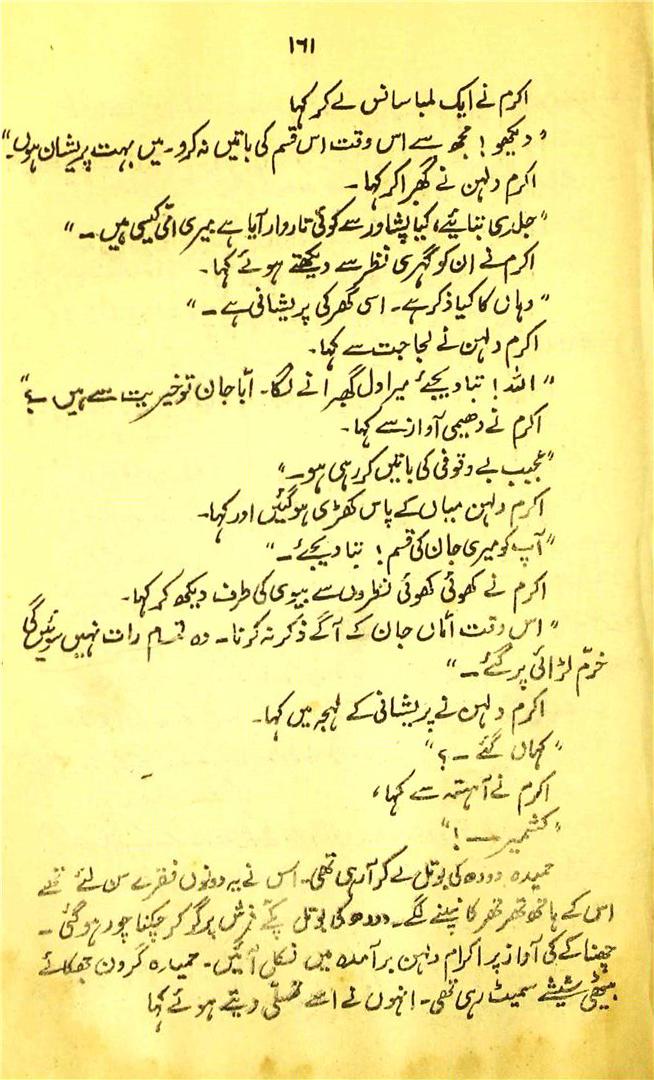 ۱۶۱
اکرم نے ایک لمبا سانس لے کر کہا
"دیکھو! مجھ سے اس وقت اس قسم کی باتیں نہ کرو۔ میں بہت پریشان ہوں۔"
اکرم دلہن نے گھبرا کر کہا۔
"جلدی بتایئے، کیا پشاور سے کوئی تار وار آیا ہے میری امّی کیسی ہیں۔"
اکرم نے ان کو گہری نظر سے دیکھتے ہوئے کہا۔
"وہاں کا کیا ذکر ہے۔ اسی گھر کی پریشانی ہے۔"
اکرم دلہن نے لجاجت سے کہا۔
"اللہ! بتا دیجئے میرا دل گھبرانے لگا۔ ابّا جان تو خیریت سے ہیں؟"
اکرم نے دھیمی آواز سے کہا۔
"عجیب بے وقوفی کی باتیں کر رہی ہو۔"
اکرم دلہن میاں کے پاس کھڑی ہوگئیں اور کہا۔
"آپ کو میری جان کی قسم! بتا دیجئے۔"
اکرم نے کھوئی کھوئی نظروں سے بیوی کی طرف دیکھ کر کہا۔
"اس وقت امّاں جان کے آگے ذکر نہ کرنا۔ وہ تمام رات نہیں سوئیں گی
خرّم لڑائی پر گئے۔"
اکرم دلہن نے پریشانی کے لہجہ میں کہا۔
"کہاں گئے۔؟"
اکرم نے آہستہ سے کہا،
"کشمیر ــــ!"
حمیدہ دودھ کی بوتل لے کر آرہی تھی۔ اس نے یہ دونوں فقرے سن لئے تھے
اس کے ہاتھ تھر تھر کانپنے لگے۔ دودھ کی بوتل پکّے فرش پر گر کر چکنا چور ہوگئی۔
چھناکے کی آواز پر اکرام دلہن برآمدہ میں نکل آئیں۔ حمیدہ گردن جھکائے
بیٹھی شیشے سمیٹ رہی تھی۔ انہوں نے اسے تسلّی دیتے ہوئے کہا